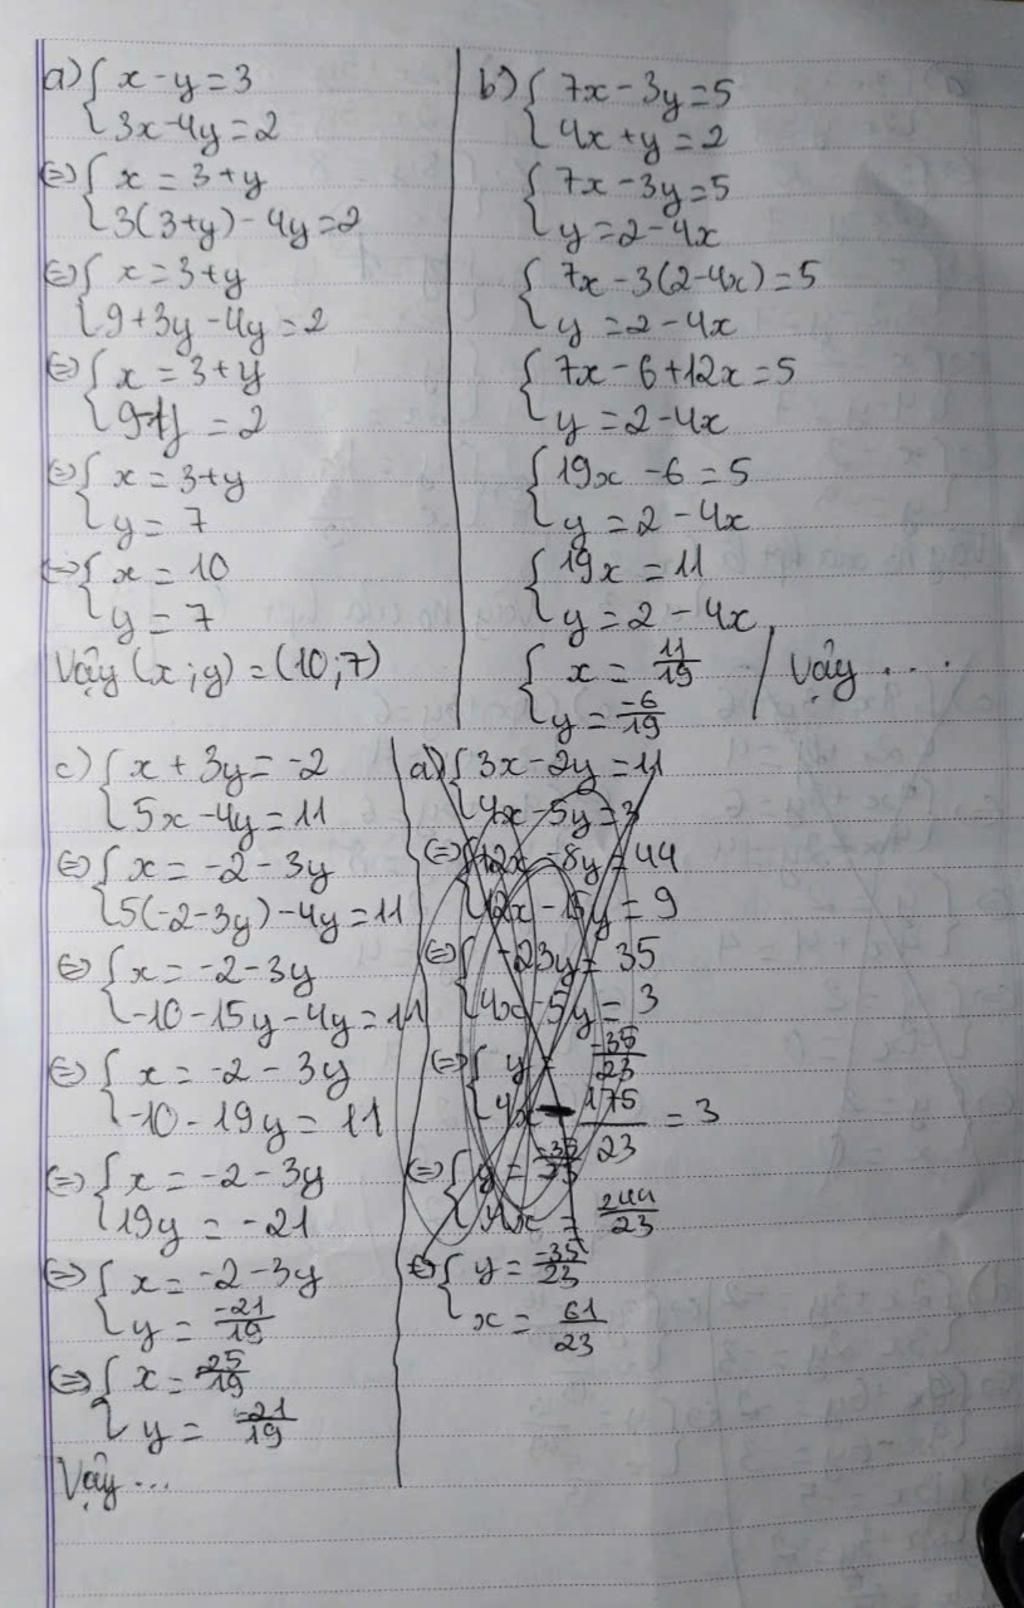 a) { x - y = 3
{ 3x - 4y = 2
⇔ { x = 3 + y
{ 3(3+y) - 4y = 2
⇔ { x = 3 + y
{ 9 + 3y - 4y = 2
⇔ { x = 3 + y
{ 9 - y = 2
⇔ { x = 3 + y
{ y = 7
⇔ { x = 10
{ y = 7
Vậy (x ; y) = (10 ; 7)
b) { 7x - 3y = 5
{ 4x + y = 2
{ 7x - 3y = 5
{ y = 2 - 4x
{ 7x - 3(2 - 4x) = 5
{ y = 2 - 4x
{ 7x - 6 + 12x = 5
{ y = 2 - 4x
{ 19x - 6 = 5
{ y = 2 - 4x
{ 19x = 11
{ y = 2 - 4x
{ x = 11/19
{ y = -6/19
/ Vậy ...
c) { x + 3y = -2
{ 5x - 4y = 11
⇔ { x = -2 - 3y
{ 5(-2-3y) - 4y = 11
⇔ { x = -2 - 3y
{ -10 - 15y - 4y = 11
⇔ { x = -2 - 3y
{ -10 - 19y = 11
⇔ { x = -2 - 3y
{ 19y = -21
⇔ { x = -2 - 3y
{ y = -21/19
⇔ { x = 25/19
{ y = -21/19
Vậy ...
a) { 3x - 2y = 11
{ 4x - 5y = 3
⇔ { 12x - 8y = 44
{ 12x - 15y = 9
⇔ { -23y = 35
{ 4x - 5y = 3
⇔ { y = -35/23
{ 4x - 175/23 = 3
⇔ { y = -35/23
{ 4x = 244/23
⇔ { y = -35/23
{ x = 61/23